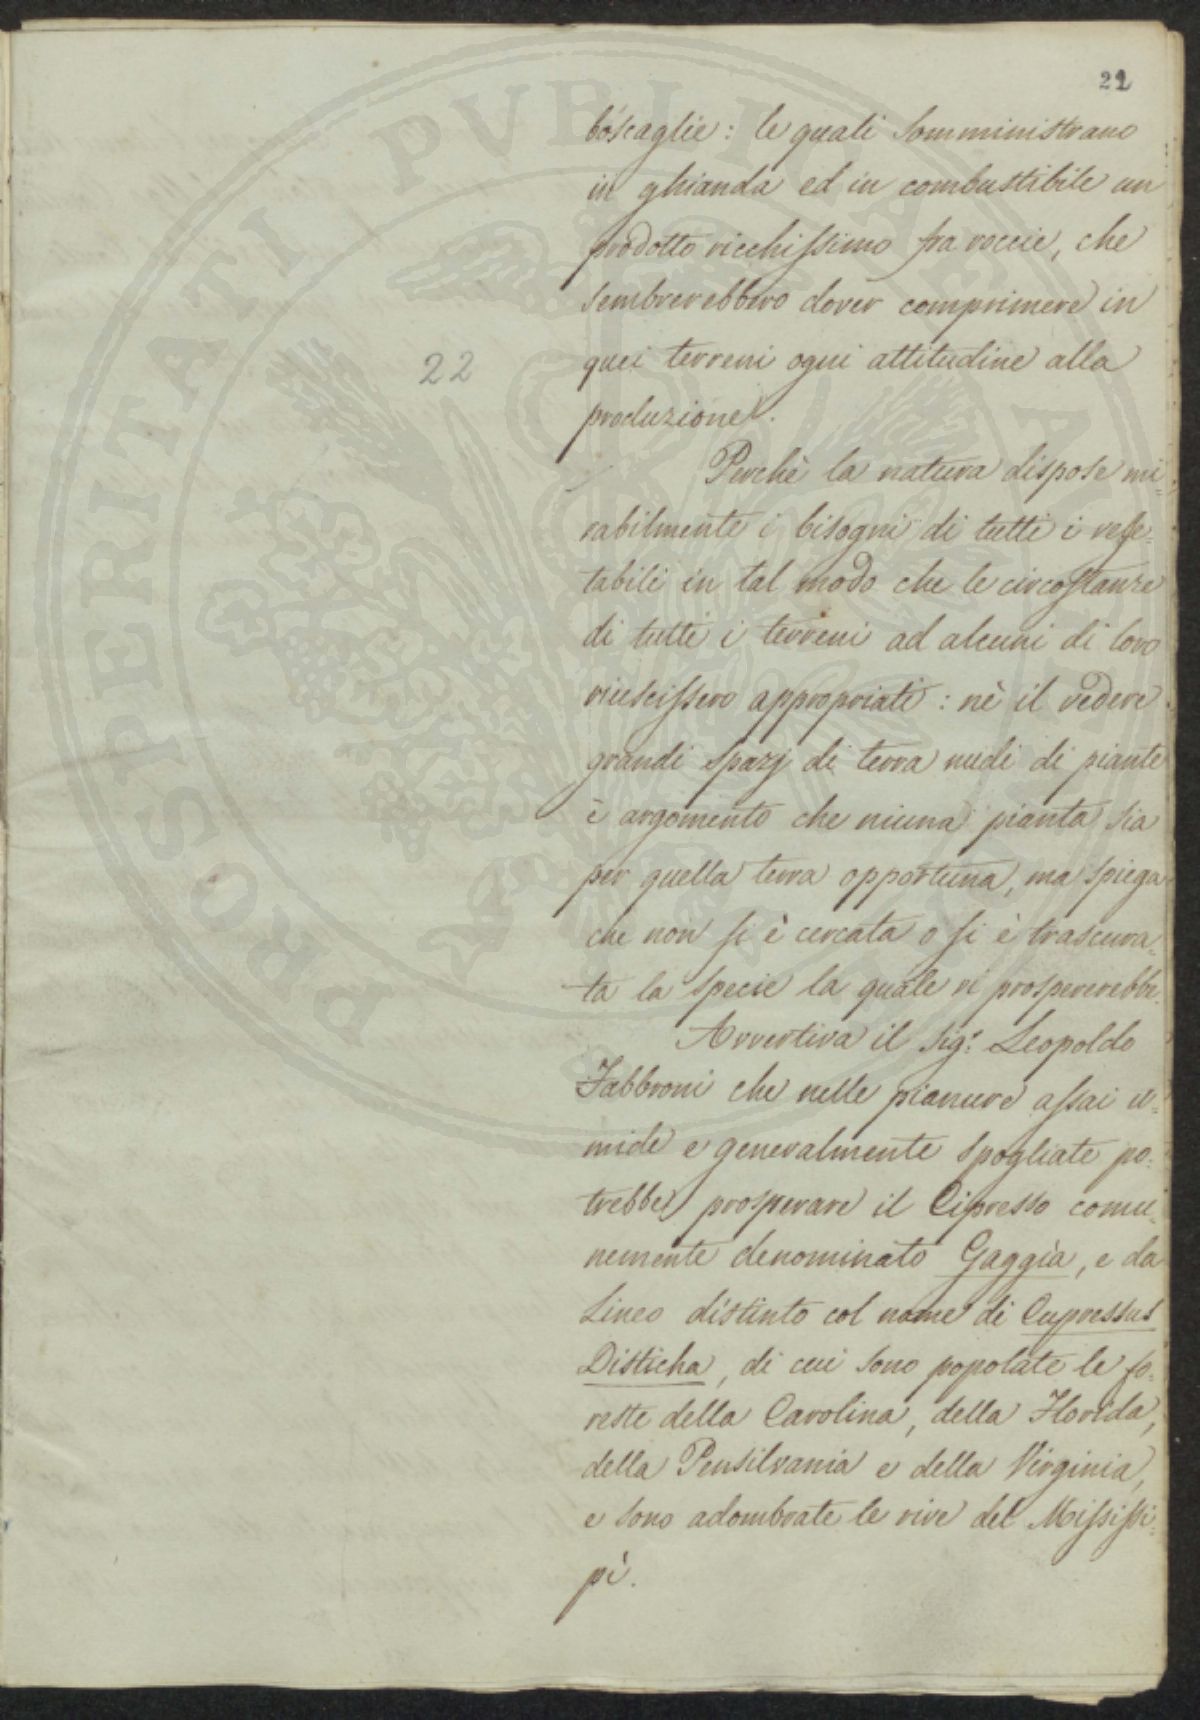 22
boscaglie: le quali somministrano
in ghianda ed in combustibile un
prodotto ricchissimo fra roccie, che
sembrerebbero dover comprimere in
quei terreni ogni attitudine alla
22
produzione.
Perchè la natura dispose mi-
rabilmente i bisogni di tutti i vege-
tabili in tal modo che le circostanze
di tutti i terreni ad alcuni di loro
riuscissero appropriati: nè il vedere
grandi spazj di terra nudi di piante
è argomento che niuna pianta sia
per quella terra opportuna, ma spiega
che non si è cercata o si è trascura-
ta la specie la quale vi prospererebbe.
Avvertiva il Sigr. Leopoldo
Fabbroni che nelle pianure assai u-
mide e generalmente spogliate po-
trebbe prosperare il Cipresso comu-
nemente denominato Gaggia, e da
Lineo distinto col nome di Cupressus
Disticha, di cui sono popolate le fo-
reste della Carolina, della Florida,
della Pensilvania e della Virginia,
e sono adombrate le rive del Missisi-
pì.
PROSPERITATI PUBLICAE AUGENDAE